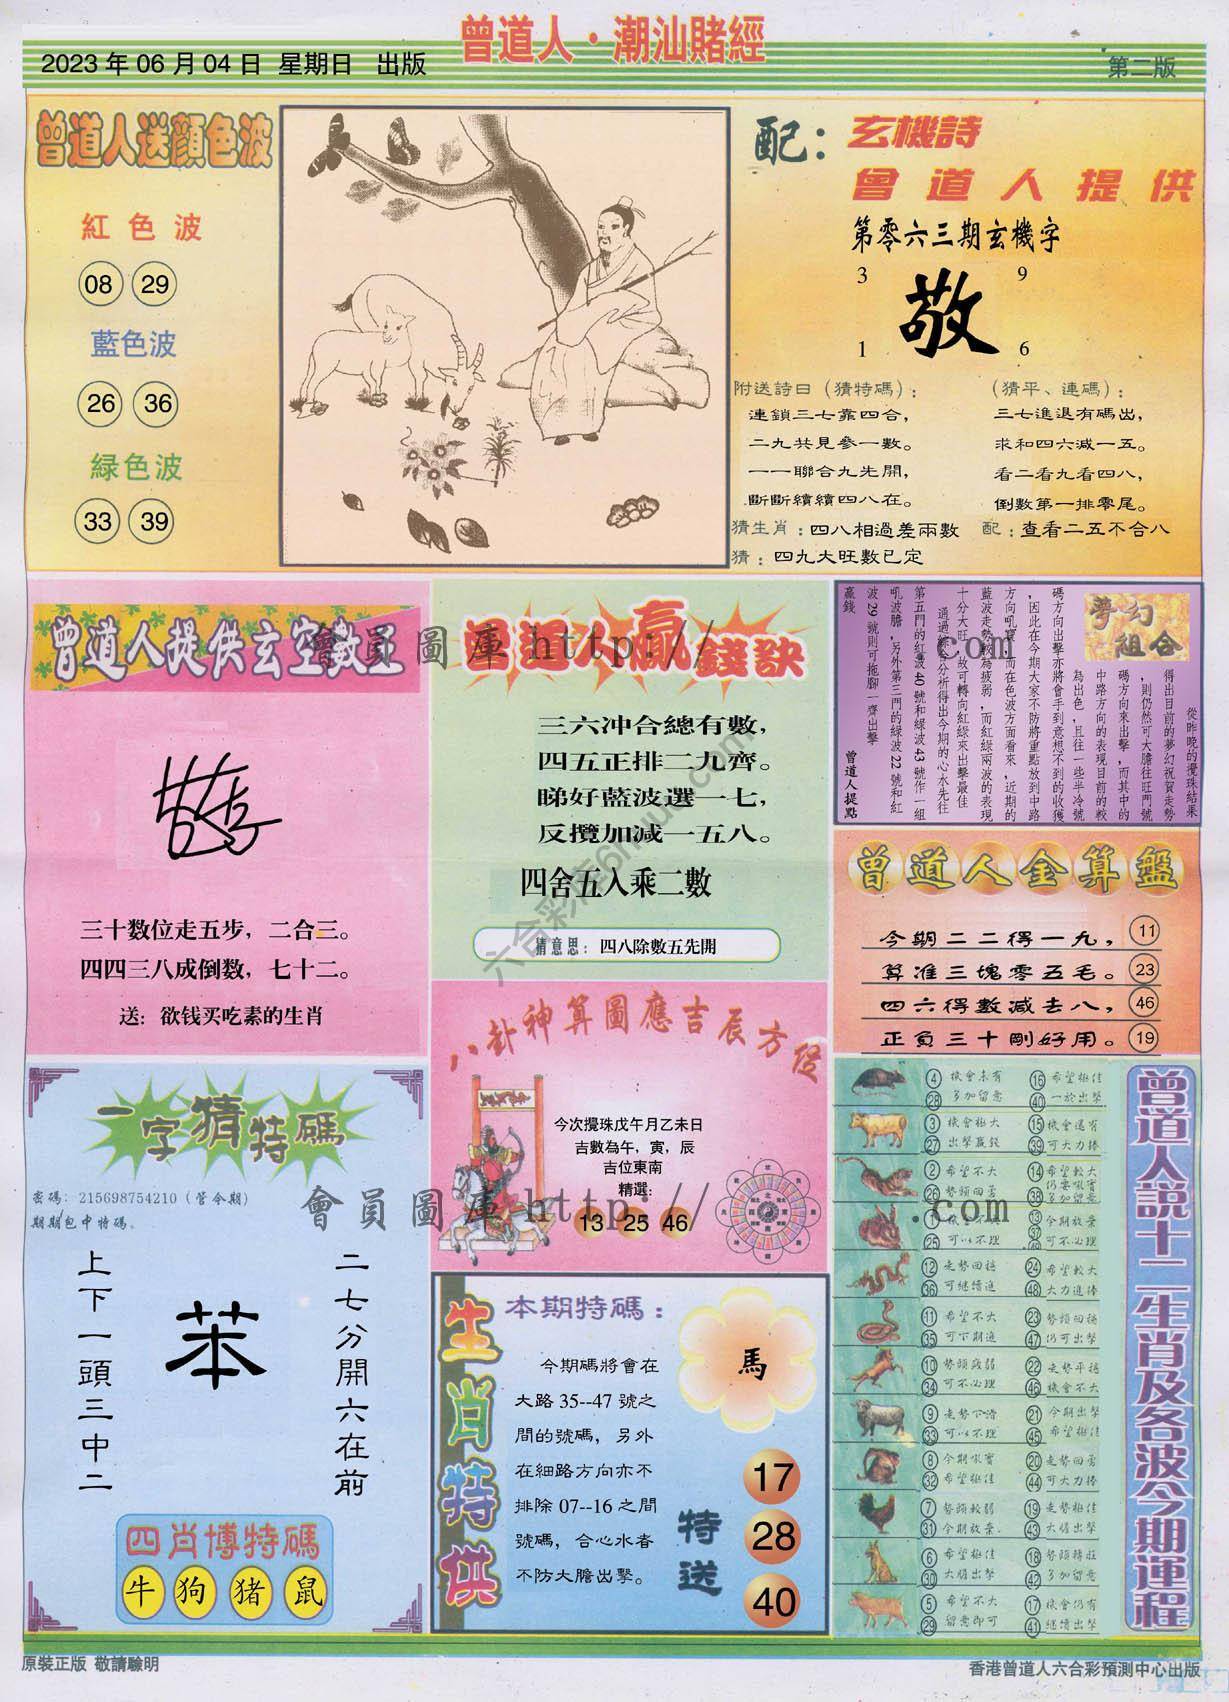 曾道人·潮汕賭經
2023 年 06 月 04 日 星期日 出版
第二版
曾道人送顏色波
紅色波
08 29
藍色波
26 36
綠色波
33 39
配：玄機詩
曾道人提供
第零六三期玄機字
3 9
敬
1 6
附送詩曰（猜特碼）：
連鎖三七靠四合，
二九共見參一數。
一一聯合九先開，
斷斷續續四八在。
（猜平、連碼）：
三七進退有碼出，
求和四六減一五。
看二看九看四八，
倒數第一排零尾。
猜生肖：四八相過差兩數
配：查看二五不合八
猜：四九大旺數已定
曾道人提供玄空數王
三十数位走五步，二合三。
四四三八成倒数，七十二。
送：欲钱买吃素的生肖
曾道人贏錢訣
三六冲合總有數，
四五正排二九齊。
睇好藍波選一七，
反攬加減一五八。
四舍五入乘二數
猜意思：四八除數五先開
夢幻組合
從昨晚的攪珠結果
得出目前的夢幻祝賀走勢
，則仍然可大膽往旺門號
碼方向來出擊，而其中的
中路方向的表現目前的較
為出色，且往一些半冷號
碼方向出擊亦將會手到意想不到的收獲
，因此在今期大家不防將重點放到中路
方向吼寶，而在色波方面看來，近期的
藍波走勢較為疲弱，而紅綠兩波的表現
十分大旺，故可轉向紅綠來出擊最佳
通過綜合分析得出今期的心水先往
第五門的紅波40號和綠波43號作一組
吼波膽，另外第三門的綠波22號和紅
波29號則可拖腳一齊出擊
贏錢
曾道人提點
曾道人金算盤
今期二二得一九， 11
算准三塊零五毛。 23
四六得數減去八， 46
正負三十剛好用。 19
八卦神算圖應吉辰方位
今次攪珠戊午月乙未日
吉數為午，寅，辰
吉位東南
精選：
13 25 46
一字猜特碼
密碼：215698754210（管令期）
期期包中特碼。
二七分開六在前
苯
上下一頭三中二
四肖博特碼
牛 狗 猪 鼠
生肖特供
本期特碼：
馬
今期碼將會在
大路 35--47 號之
間的號碼，另外
在細路方向亦不
排除 07--16 之間
號碼，合心水者
不防大膽出擊。
特送
17
28
40
曾道人說十二生肖及各波今期運程
4 28 機會未有 多加留意
16 40 希望極佳 一於出擊
3 27 機會極大 出擊贏錢
15 39 機會還有 可大力捧
2 26 希望不大 勢頭回勇
14 38 希望較大 仍要吼實 多加留意
1 25 機會不大 可以不理
13 37 49 今期放棄 可不必理
12 36 走勢回揚 可繼續追
24 48 希望較大 大力追捧
11 35 希望不大 可下期追
23 47 勢頭回揚 仍可出擊
10 34 勢頭疲弱 可不必理
22 46 走勢平穩 機會不大
9 33 走勢下滑 可以不理
21 45 今期出擊 希望極佳
8 32 今期吼實 希望極佳
20 44 走勢回勇 可大力捧
7 31 勢頭較弱 今期放棄
19 43 走勢極佳 大膽出擊
6 30 希望極佳 大膽出擊
18 42 勢頭轉旺 多加留意
5 29 希望不大 留意即可
17 41 機會仍有 繼續出擊
會員圖庫 http:// .com
會員圖庫 http:// .com
原裝正版 敬請驗明
香港曾道人六合彩預測中心出版